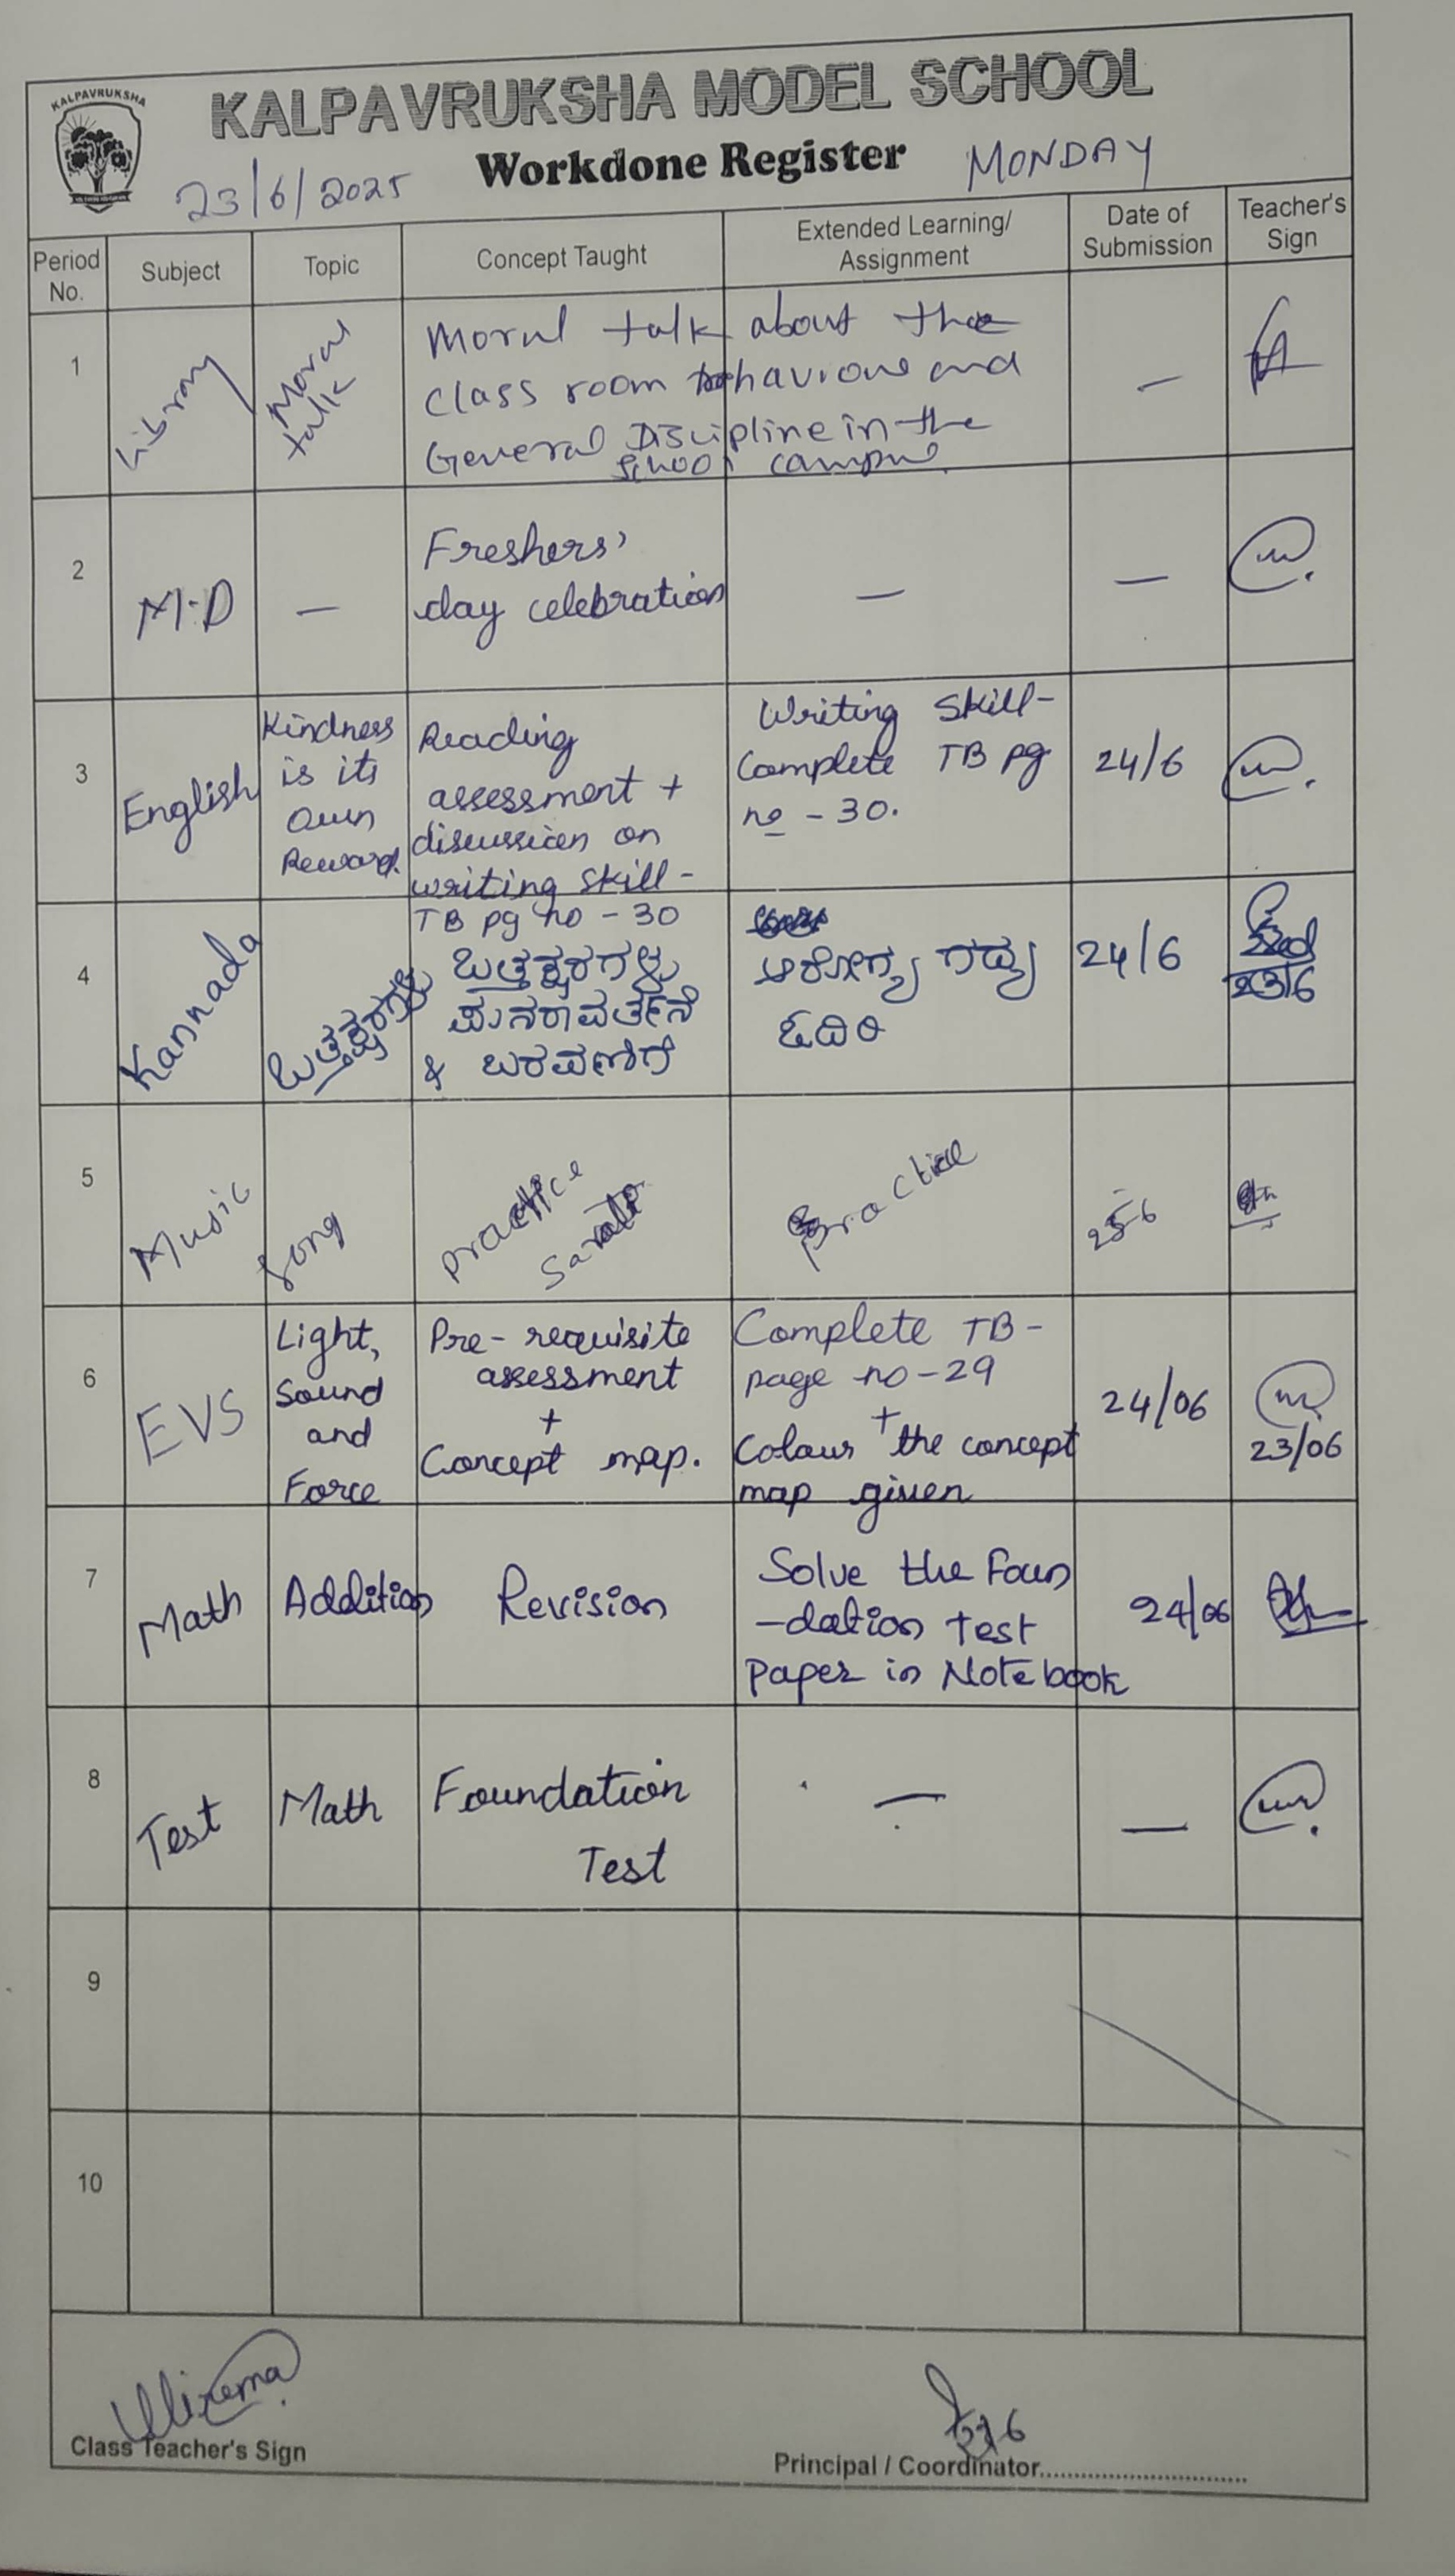 KALPAVRUKSHA
KALPAVRUKSHA MODEL SCHOOL
Workdone Register MONDAY
23/6/2025
Period No. Subject Topic Concept Taught Extended Learning/ Assignment Date of Submission Teacher's Sign
1 Library Moral talk
Moral talk about the
class room behaviour and
General Discipline in the
school campus.
—
2 M.D —
Freshers'
day celebration
— —
3 English
Kindness
is its
own
Reward.
Reading
assessment +
discussion on
writing skill -
TB pg no - 30
Writing Skill-
Complete TB pg
no - 30.
24/6
4 Kannada
ಒತ್ತಕ್ಷರಗಳು
ಒತ್ತಕ್ಷರಗಳು
ಪುನರಾವರ್ತನೆ
& ಬರವಣಿಗೆ
ಆರೋಗ್ಯ ಗದ್ಯ
ಓದಿರಿ
24/6
23/6
5 Music Song
practice
Practice
25-6
6 EVS
Light,
Sound
and
Force
Pre-requisite
assessment
+
Concept map.
Complete TB-
page no-29
+
Colour the concept
map given
24/06
23/06
7 Math Addition Revision
Solve the Foun
-dation Test
Paper in Notebook
24/06
8 Test Math
Foundation
Test
— —
9
10
Class Teacher's Sign
Principal / Coordinator..............................